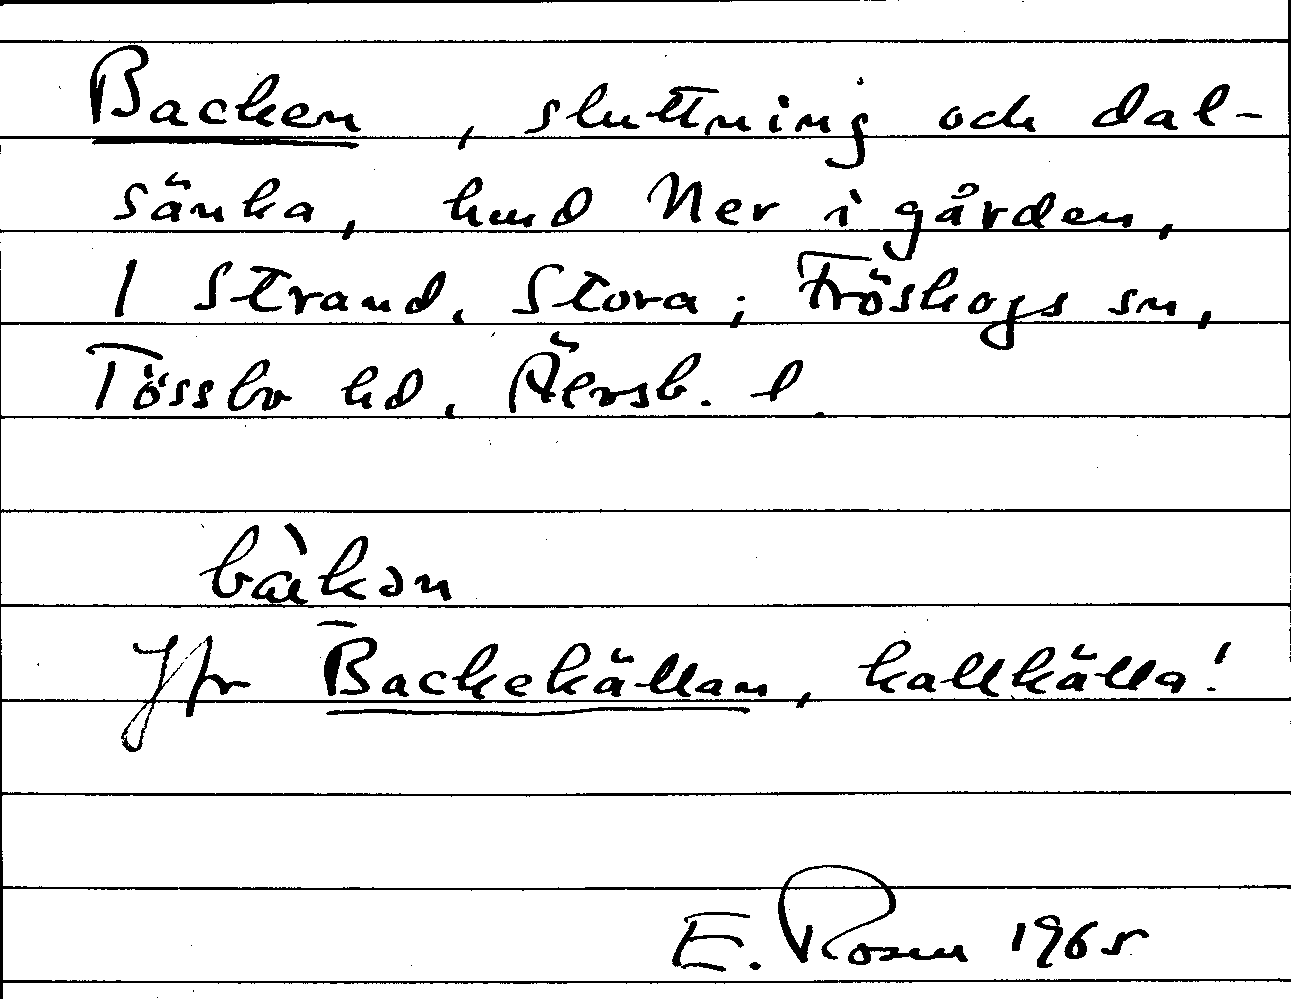 Backen, sluttning och dal-
sänka, kund Ner i gården,
1 Strand, Stora; Fröskogs sn,
Tössbo hd. Älvsb. l.
bàkən
Jfr Backekällan, kallkälla!
E. Rosen 1965